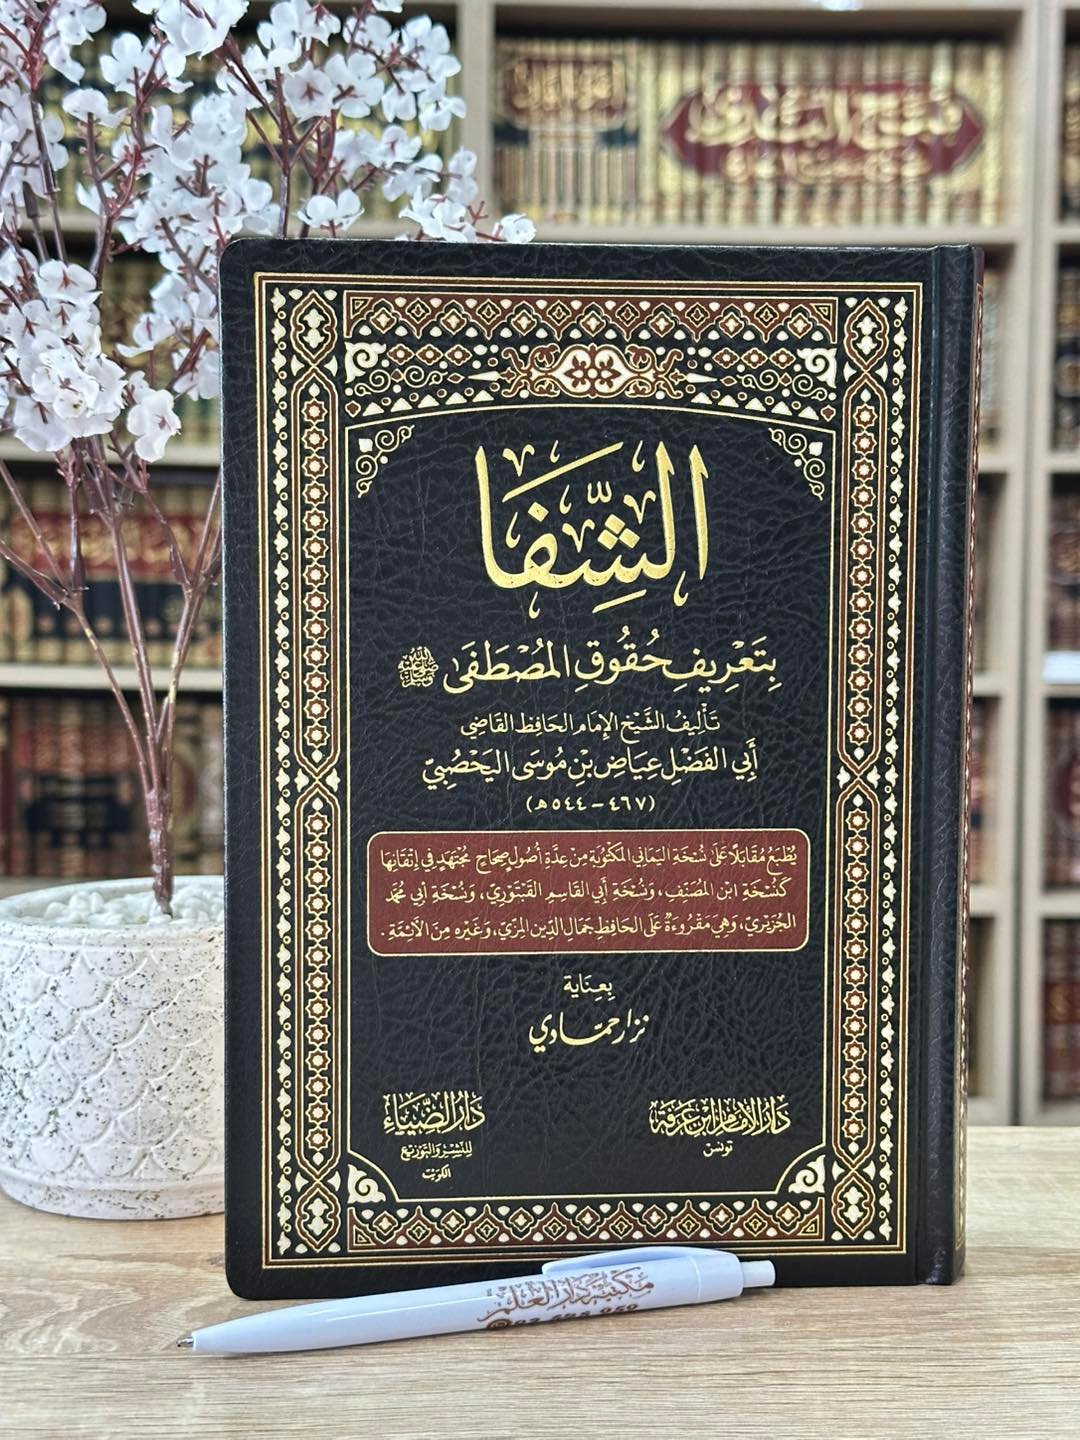 الشِّفَا
بِتَعْرِيفِ حُقُوقِ المُصْطَفَى ﷺ
تَأْلِيفُ الشَّيْخِ الإِمَامِ الحَافِظِ القَاضِي
أَبِي الفَضْلِ عِيَاضِ بْنِ مُوسَى اليَحْصُبِيّ
(٤٦٧ - ٥٤٤ هـ)
يُطْبَعُ مُقَابَلًا عَلَى نُسْخَةِ اليَمَانِي المَكْتُوبَةِ مِنْ عِدَّةِ أُصُولٍ صِحَاحٍ مُجْتَهَدٍ فِي إِتْقَانِهَا
كَنُسْخَةِ ابْنِ المُصَنِّفِ، وَنُسْخَةِ أَبِي القَاسِمِ القَبْتَوْرِي، وَنُسْخَةِ أَبِي مُحَمَّد
الجُزَيْرِي، وَهِيَ مَقْرُوءَةٌ عَلَى الحَافِظِ جَمَالِ الدِّينِ المِزِّي، وَغَيْرِهِ مِنَ الأَئِمَّةِ.
بِعِنَايَة
نزار حمّادي
دَارُ الإِمَامِ ابْنِ عَرَفَة
تونس
دَارُ الضِّيَاء
لِلنَّشْرِ وَالتَّوْزِيع
الكويت
مكتبة دار العلم